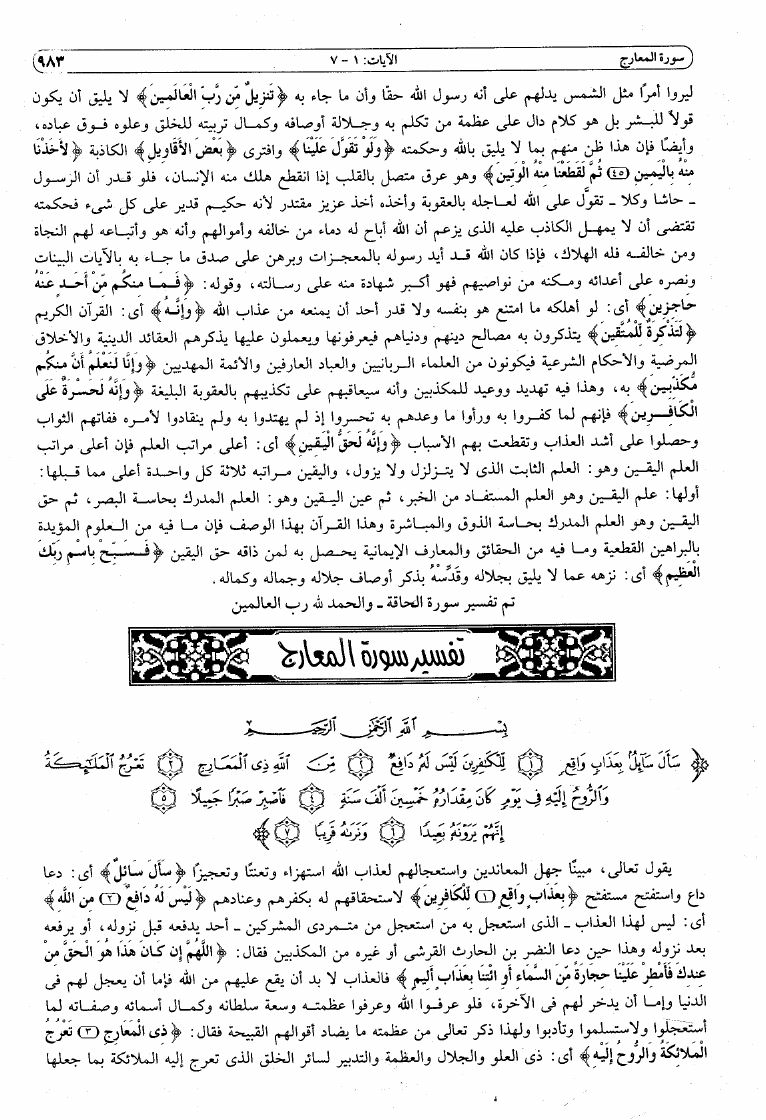 سورة المعارج الآيات: ١ - ٧ ٩٨٣
ليروا أمرًا مثل الشمس يدلهم على أنه رسول الله حقًا وأن ما جاء به ﴿تَنزِيلٌ مِّن رَّبِّ الْعَالَمِينَ﴾ لا يليق أن يكون
قولاً للبشر بل هو كلام دال على عظمة من تكلم به وجلالة أوصافه وكمال تربيته للخلق وعلوه فوق عباده،
وأيضًا فإن هذا ظن منهم بما لا يليق بالله وحكمته ﴿وَلَوْ تَقَوَّلَ عَلَيْنَا﴾ وافترى ﴿بَعْضَ الأَقَاوِيلِ﴾ الكاذبة ﴿لأَخَذْنَا
مِنْهُ بِالْيَمِينِ (٤٥) ثُمَّ لَقَطَعْنَا مِنْهُ الْوَتِينَ﴾ وهو عرق متصل بالقلب إذا انقطع هلك منه الإنسان، فلو قدر أن الرسول
- حاشا وكلا - تقوّل على الله لعاجله بالعقوبة وأخذه أخذ عزيز مقتدر لأنه حكيم قدير على كل شىء فحكمته
تقتضى أن لا يمهل الكاذب عليه الذى يزعم أن الله أباح له دماء من خالفه وأموالهم وأنه هو وأتباعه لهم النجاة
ومن خالفه فله الهلاك، فإذا كان الله قد أيد رسوله بالمعجزات وبرهن على صدق ما جاء به بالآيات البينات
ونصره على أعدائه ومكنه من نواصيهم فهو أكبر شهادة منه على رسالته، وقوله: ﴿فَمَا مِنكُم مِّنْ أَحَدٍ عَنْهُ
حَاجِزِينَ﴾ أى: لو أهلكه ما امتنع هو بنفسه ولا قدر أحد أن يمنعه من عذاب الله ﴿وَإِنَّهُ﴾ أى: القرآن الكريم
﴿لَتَذْكِرَةٌ لِّلْمُتَّقِينَ﴾ يتذكرون به مصالح دينهم ودنياهم فيعرفونها ويعملون عليها يذكرهم العقائد الدينية والأخلاق
المرضية والأحكام الشرعية فيكونون من العلماء الربانيين والعباد العارفين والأئمة المهديين ﴿وَإِنَّا لَنَعْلَمُ أَنَّ مِنكُم
مُّكَذِّبِينَ﴾ به، وهذا فيه تهديد ووعيد للمكذبين وأنه سيعاقبهم على تكذيبهم بالعقوبة البليغة ﴿وَإِنَّهُ لَحَسْرَةٌ عَلَى
الْكَافِرِينَ﴾ فإنهم لما كفروا به ورأوا ما وعدهم به تحسروا إذ لم يهتدوا به ولم ينقادوا لأمره ففاتهم الثواب
وحصلوا على أشد العذاب وتقطعت بهم الأسباب ﴿وَإِنَّهُ لَحَقُّ الْيَقِينِ﴾ أى: أعلى مراتب العلم فإن أعلى مراتب
العلم اليقين وهو: العلم الثابت الذى لا يتزلزل ولا يزول، واليقين مراتبه ثلاثة كل واحدة أعلى مما قبلها:
أولها: علم اليقين وهو العلم المستفاد من الخبر، ثم عين اليقين وهو: العلم المدرك بحاسة البصر، ثم حق
اليقين وهو العلم المدرك بحاسة الذوق والمباشرة وهذا القرآن بهذا الوصف فإن ما فيه من العلوم المؤيدة
بالبراهين القطعية وما فيه من الحقائق والمعارف الإيمانية يحصل به لمن ذاقه حق اليقين ﴿فَسَبِّحْ بِاسْمِ رَبِّكَ
الْعَظِيمِ﴾ أى: نزهه عما لا يليق بجلاله وقدِّسْهُ بذكر أوصاف جلاله وجماله وكماله.
تم تفسير سورة الحاقة - والحمد لله رب العالمين
تفسير سورة المعارج
بِسْمِ اللَّهِ الرَّحْمَٰنِ الرَّحِيمِ
﴿سَأَلَ سَآئِلٌۢ بِعَذَابٍ وَاقِعٍ ۝١ لِّلْكَٰفِرِينَ لَيْسَ لَهُۥ دَافِعٌ ۝٢ مِّنَ ٱللَّهِ ذِى ٱلْمَعَارِجِ ۝٣ تَعْرُجُ ٱلْمَلَٰٓئِكَةُ
وَٱلرُّوحُ إِلَيْهِ فِى يَوْمٍ كَانَ مِقْدَارُهُۥ خَمْسِينَ أَلْفَ سَنَةٍ ۝٤ فَٱصْبِرْ صَبْرًا جَمِيلًا ۝٥
إِنَّهُمْ يَرَوْنَهُۥ بَعِيدًا ۝٦ وَنَرَىٰهُ قَرِيبًا ۝٧﴾
يقول تعالى، مبينًا جهل المعاندين واستعجالهم لعذاب الله استهزاء وتعنتًا وتعجيزًا ﴿سَأَلَ سَائِلٌ﴾ أى: دعا
داع واستفتح مستفتح ﴿بِعَذَابٍ وَاقِعٍ (١) لِّلْكَافِرِينَ﴾ لاستحقاقهم له بكفرهم وعنادهم ﴿لَيْسَ لَهُ دَافِعٌ (٢) مِّنَ اللَّهِ﴾
أى: ليس لهذا العذاب - الذى استعجل به من استعجل من متمردى المشركين - أحد يدفعه قبل نزوله، أو يرفعه
بعد نزوله وهذا حين دعا النضر بن الحارث القرشى أو غيره من المكذبين فقال: ﴿اللَّهُمَّ إِن كَانَ هَذَا هُوَ الْحَقَّ مِنْ
عِندِكَ فَأَمْطِرْ عَلَيْنَا حِجَارَةً مِّنَ السَّمَاءِ أَوِ ائْتِنَا بِعَذَابٍ أَلِيمٍ﴾ فالعذاب لا بد أن يقع عليهم من الله فإما أن يعجل لهم فى
الدنيا وإما أن يدخر لهم فى الآخرة، فلو عرفوا الله وعرفوا عظمته وسعة سلطانه وكمال أسمائه وصفاته لما
استعجلوا ولاستسلموا وتأدبوا ولهذا ذكر تعالى من عظمته ما يضاد أقوالهم القبيحة فقال: ﴿ذِى الْمَعَارِجِ (٣) تَعْرُجُ
الْمَلائِكَةُ وَالرُّوحُ إِلَيْهِ﴾ أى: ذى العلو والجلال والعظمة والتدبير لسائر الخلق الذى تعرج إليه الملائكة بما جعلها